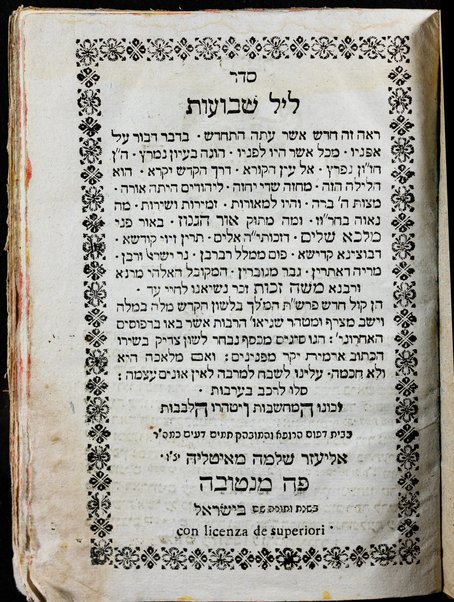 סדר
ליל שבועות
ראה זה חדש אשר עתה התחדש · בדבר דבור על
אפניו · מכל אשר היו לפניו · הוגה בעיון נמרץ · ה״ן
חז״ון נפרץ · אל עין הקורא · דרך הקדש יקרא · הוא
הלילה הזה · מחזה שדי יחזה · ליהודים היתה אורה ·
מצות ה׳ ברה · והיו למאורות · זמירות ושירות · מה
נאוה בחר״וז · ומה מתוק אור הגנוז · באור פני
מלכא שלים · דזכותי״ה אלים · תרין זיוי קודשא ·
דבוצינא קדישא · פום ממלל רברבן · נר ישראל ורבן ·
מריה דאתרין · גבר מגוברין · המקובל האלהי מרנא
ורבנא משה זכות זכר נשיאנו לחיי עד ·
הן קול חדש פרש״ת המ״לך בלשון הקדש מלה במלה
וישב מצרף ומטהר שגיאו׳ הרבות אשר באו בדפוסים
האחרוני׳ : הנו סיגים מכסף נבחר לשון צדיק בשירו
הכתוב ארמית יקר מפנינים : ואם מלאכה היא
ולא חכמה · עלינו לשבח למרבה לאין אונים עצמה :
סלו לרכב בערבות
יכונו המחשבות ויטהרו הלבבות
בבית דפוס הרופא והמובהק תמים דעים כמה״ר
אליעזר שלמה מאיטליה יצ״ו
פה מנטובה
בשנת בישראל
con licenza de superiori ·